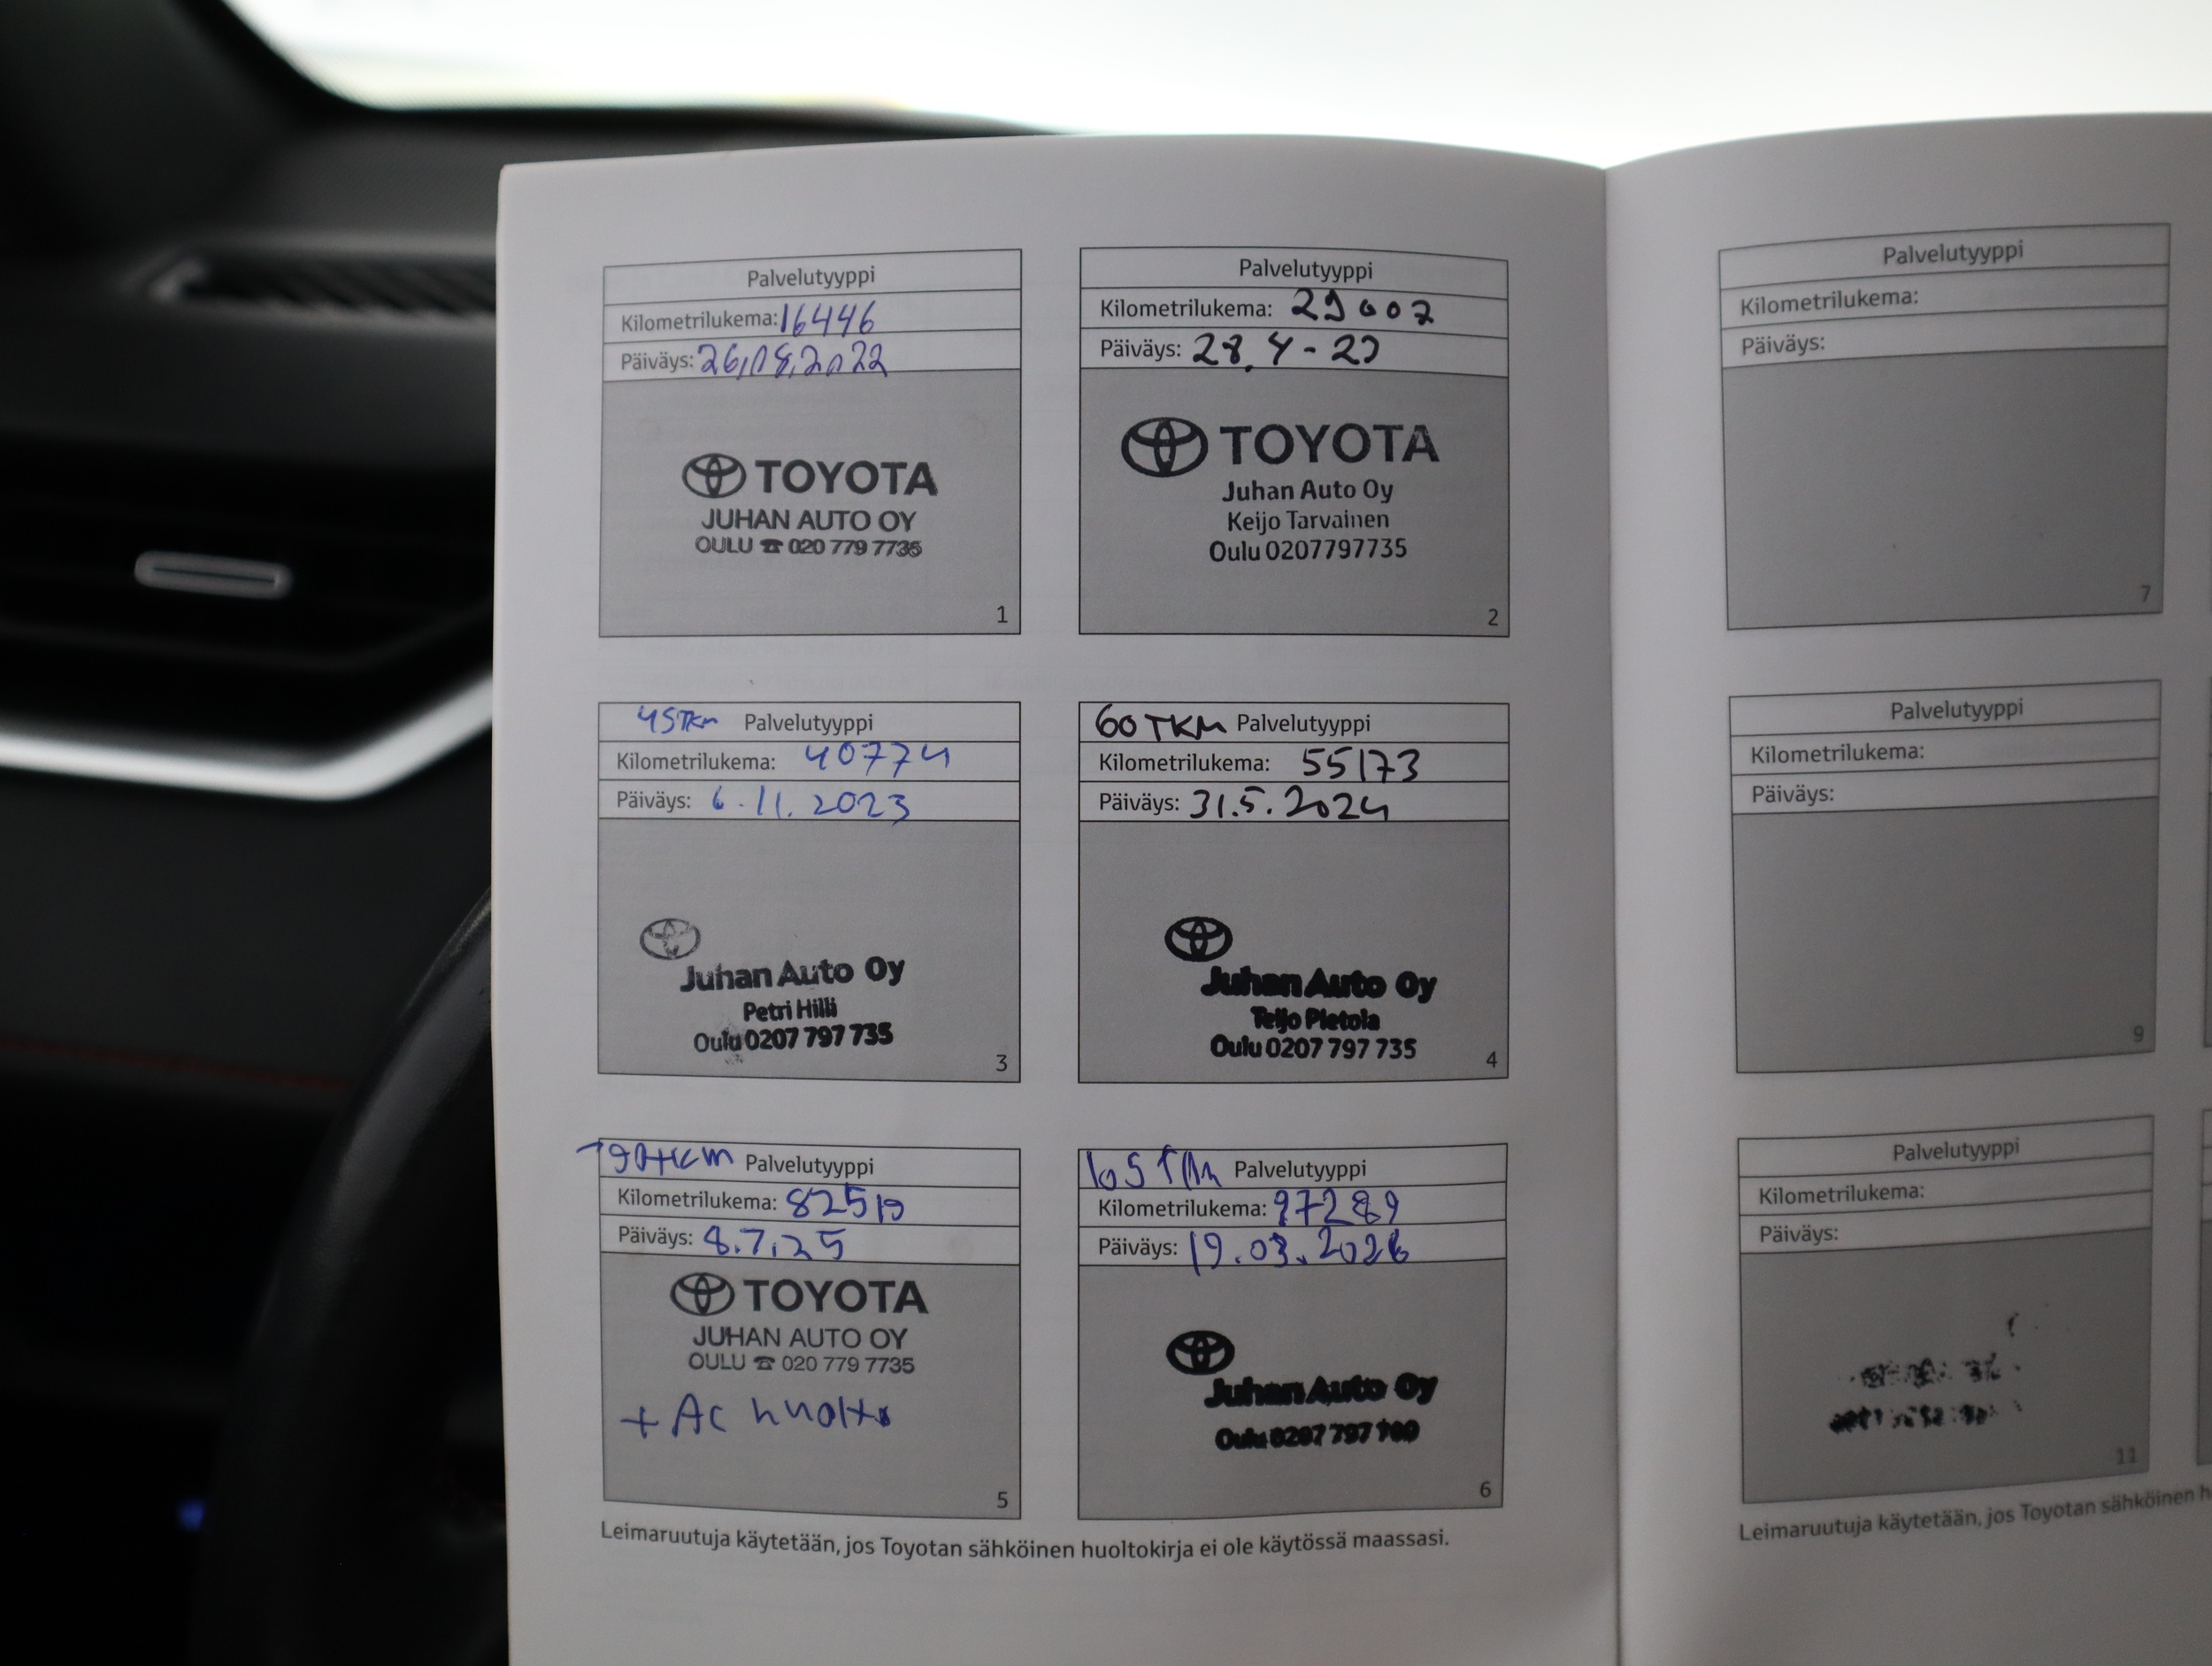 Palvelutyyppi
Kilometrilukema: 16446
Päiväys: 26.08.2022
TOYOTA
JUHAN AUTO OY
OULU ☎ 020 779 7735
1
Palvelutyyppi
Kilometrilukema: 29007
Päiväys: 28.4-23
TOYOTA
Juhan Auto Oy
Keijo Tarvainen
Oulu 0207797735
2
45TKm Palvelutyyppi
Kilometrilukema: 40774
Päiväys: 6.11.2023
Juhan Auto Oy
Petri Hilli
Oulu 0207 797 735
3
60TKM Palvelutyyppi
Kilometrilukema: 55173
Päiväys: 31.5.2024
Juhan Auto Oy
Teijo Pietola
Oulu 0207 797 735
4
90tkm Palvelutyyppi
Kilometrilukema: 82519
Päiväys: 8.7.25
TOYOTA
JUHAN AUTO OY
OULU ☎ 020 779 7735
+ AC huolto
5
105 TKm Palvelutyyppi
Kilometrilukema: 97289
Päiväys: 19.03.2026
Juhan Auto Oy
Oulu 0207 797
6
Leimaruutuja käytetään, jos Toyotan sähköinen huoltokirja ei ole käytössä maassasi.
Palvelutyyppi
Kilometrilukema:
Päiväys:
7
Palvelutyyppi
Kilometrilukema:
Päiväys:
9
Palvelutyyppi
Kilometrilukema:
Päiväys:
11
Leimaruutuja käytetään, jos Toyotan sähköinen h